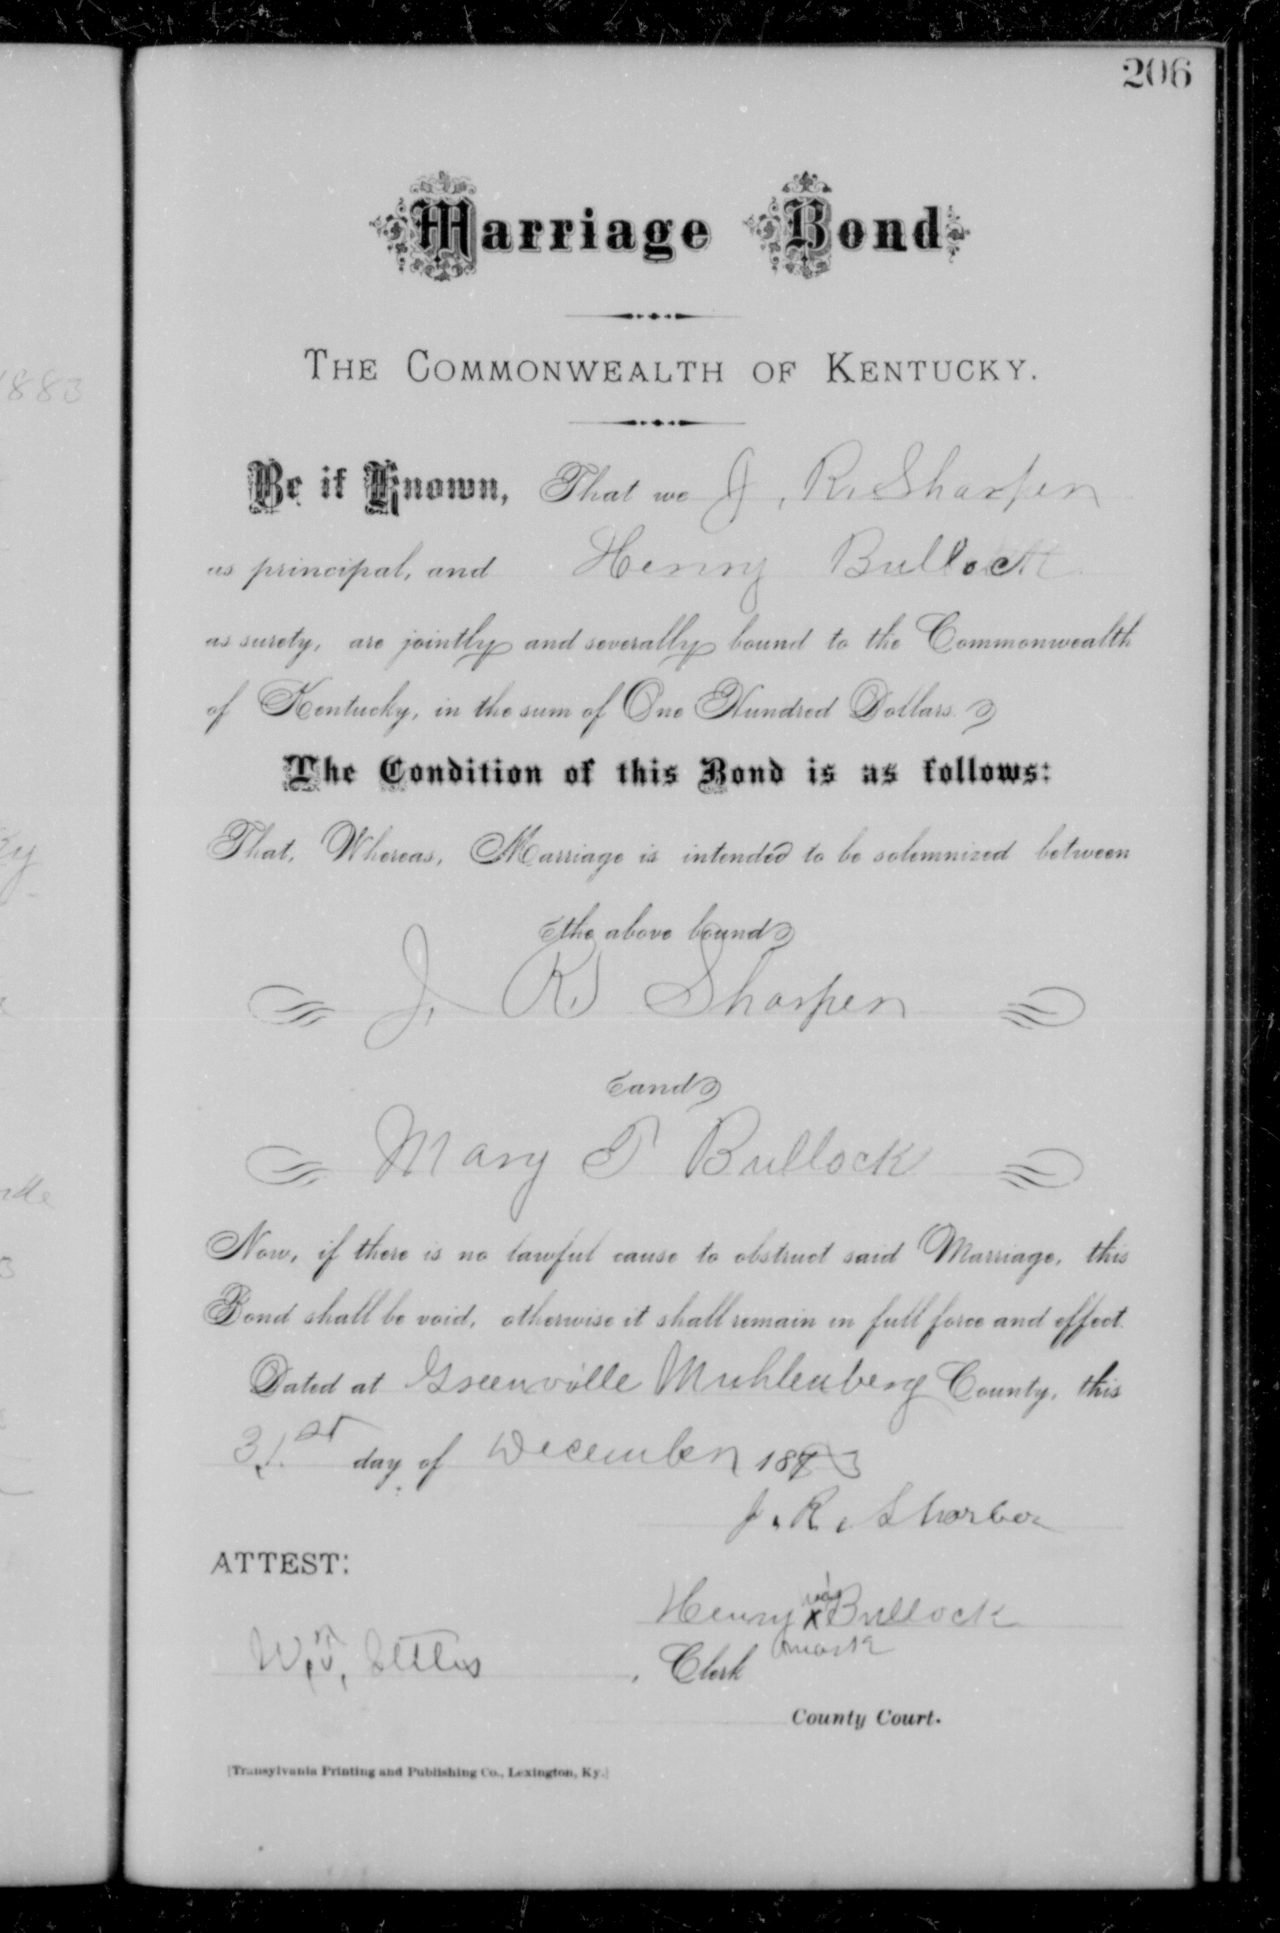 206
1883
Marriage Bond
THE COMMONWEALTH OF KENTUCKY.
Be it Known, That we J. R. Sharpen
as principal, and Henry Bullock
as surety, are jointly and severally bound to the Commonwealth
of Kentucky, in the sum of One Hundred Dollars.
The Condition of this Bond is as follows:
That, Whereas, Marriage is intended to be solemnized between
the above bound
J. R. Sharpen
and
Mary T Bullock
Now, if there is no lawful cause to obstruct said Marriage, this
Bond shall be void, otherwise it shall remain in full force and effect.
Dated at Greenville Muhlenberg County, this
31st day of December 1883
J. R. Sharber
ATTEST:
his
Henry X Bullock
mark
W. T. , Clerk
County Court.
[Transylvania Printing and Publishing Co., Lexington, Ky.]